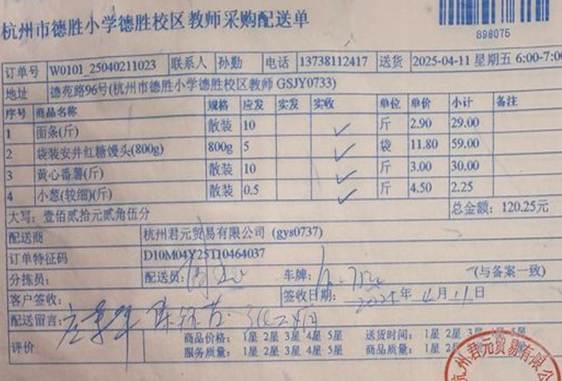 杭州市德胜小学德胜校区教师采购配送单
898075
订单号 W0101_25040211023 联系人 孙勤 电话 13738112417 送货 2025-04-11 星期五 6:00-7:00
地址 德苑路96号(杭州市德胜小学德胜校区教师 GSJY0733)
序号 商品名称 规格 应发 实发 实收 单位 单价 小计 备注
1 面条(斤) 散装 10 ✓ 斤 2.90 29.00
2 袋装安井红糖馒头(800g) 800g 5 ✓ 袋 11.80 59.00
3 黄心番薯(斤) 散装 10 ✓ 斤 3.00 30.00
4 小葱(较细)(斤) 散装 0.5 ✓ 斤 4.50 2.25
大写:壹佰贰拾元贰角伍分 总金额:120.25元
配送商 杭州君元贸易有限公司 (gys0737)
订单特征码 D10M04Y25T10464037
分拣员: 配送员: 车牌: (与备案一致)
客户签收: 签收日期: 2025年4月11日
配送留言:
评价 商品价格: 1星 2星 3星 4星 5星 送货时间: 1星 2星 3星 4星 5星
商品质量: 1星 2星 3星 4星 5星 服务质量: 1星 2星 3星 4星 5星
杭州君元贸易有限公司